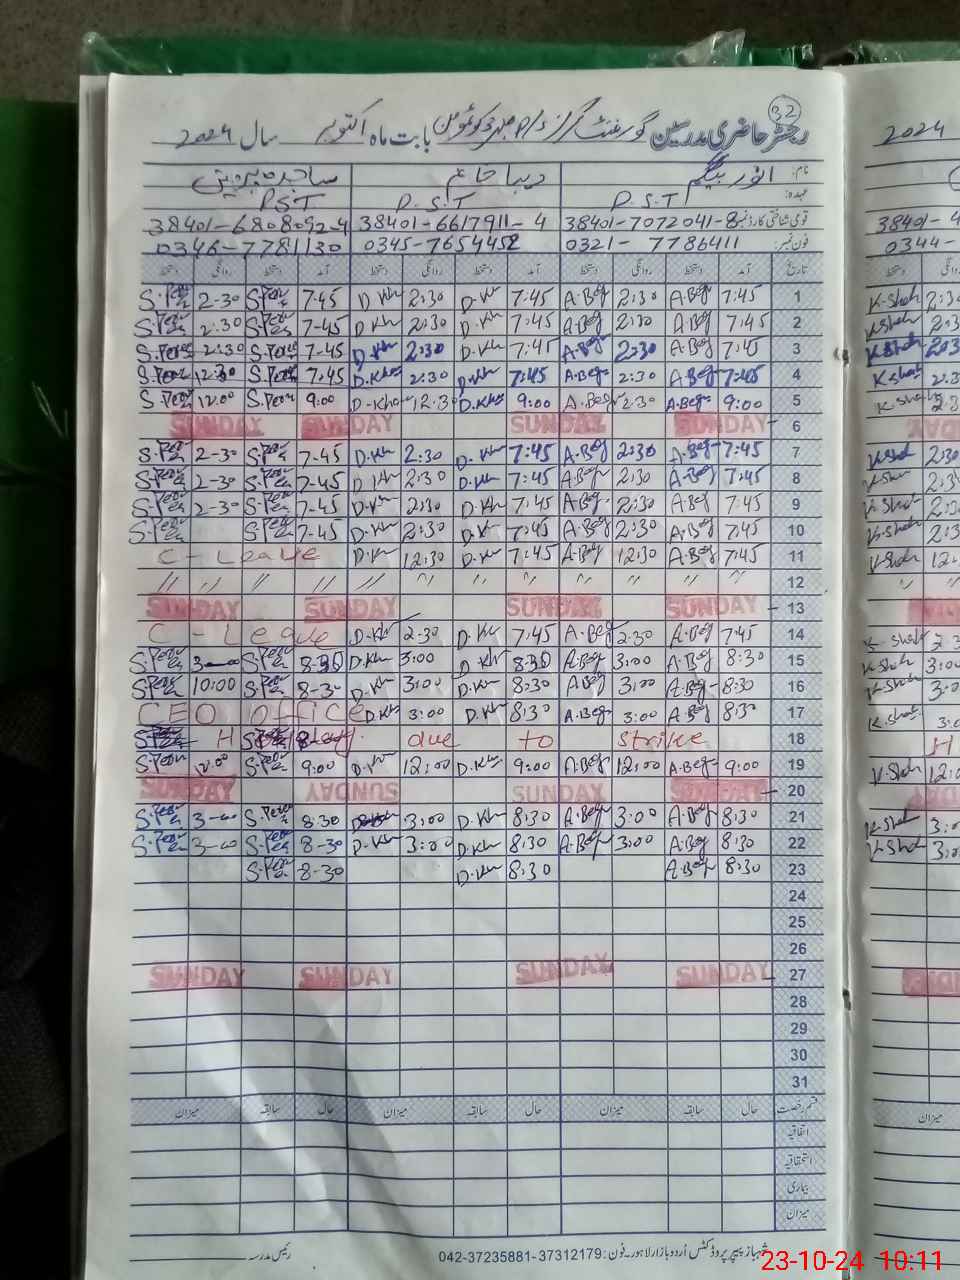 32
رجسٹر حاضری مدرسین گورنمنٹ گرلز بابت ماہ اکتوبر سال 2024
نام: انور بیگم دیبا خانم ساجدہ پروین
عہدہ: P.S.T P.S.T PST
قومی شناختی کارڈ نمبر 38401-7072041-8 38401-6617911-4 38401-6808092-4
فون نمبر: 0321-7786411 0345-7654452 0346-7781130
تاریخ آمد دستخط روانگی دستخط آمد دستخط روانگی دستخط آمد دستخط روانگی دستخط
1 7:45 A.Beg 2:30 A.Beg 7:45 D.Kh 2:30 D.Kh 7-45 S.Perv 2-30 S.Perv
2 7:45 A.Beg 2:30 A.Beg 7:45 D.Kh 2:30 D.Kh 7-45 S.Perv 2.30 S.Perv
3 7:45 A.Beg 2:30 A.Beg 7:45 D.Kh 2:30 D.Kh 7-45 S.Perv 2:30 S.Perv
4 7:45 A.Beg 2:30 A.Beg 7:45 D.Kh 2:30 D.Kh 7.45 S.Perv 12:30 S.Perv
5 9:00 A.Beg 2:30 A.Beg 9:00 D.Kh 12:30 D-Kh 9:00 S.Perv 12:00 S.Perv
6 SUNDAY SUNDAY SUNDAY SUNDAY
7 7:45 A.Beg 2:30 A.Beg 7:45 D.Kh 2:30 D.Kh 7-45 S.Perv 2-30 S.Perv
8 7:45 A-Beg 2:30 A.Beg 7:45 D.Kh 2:30 D.Kh 7-45 S.Perv 2-30 S.Perv
9 7:45 A.Beg 2:30 A.Beg 7:45 D.Kh 2:30 D.Kh 7-45 S.Perv 2-30 S.Perv
10 7:45 A.Beg 2:30 A.Beg 7:45 D.Kh 2:30 D.Kh 7-45 S.Perv S.Perv
11 7:45 A.Beg 12:30 A.Beg 7:45 D.Kh 12:30 D.Kh C - Leave
12 " " " " " " " " // // // //
13 SUNDAY SUNDAY SUNDAY SUNDAY
14 7:45 A.Beg 2:30 A.Beg 7:45 D.Kh 2:30 D.Kh C - Leave
15 8:30 A.Beg 3:00 A.Beg 8:30 D.Kh 3:00 D.Kh 8-30 S.Perv 3-00 S.Perv
16 8:30 A.Beg 3:00 A.Beg 8:30 D.Kh 3:00 D.Kh 8-30 S.Perv 10:00 S.Perv
17 8:30 A.Beg 3:00 A.Beg 8:30 D.Kh 3:00 D.Kh CEO office
18 Holiday due to strike
19 9:00 A.Beg 12:00 A.Beg 9:00 D.Kh 12:00 D.Kh 9:00 S.Perv 12:00 S.Perv
20 SUNDAY SUNDAY SUNDAY SUNDAY
21 8:30 A.Beg 3:00 A.Beg 8:30 D.Kh 3:00 8:30 S.Perv 3-00 S.Perv
22 8:30 A.Beg 3:00 A.Beg 8:30 D.Kh 3:00 D.Kh 8-30 S.Perv 3-00 S.Perv
23 8:30 A.Beg 8:30 D.Kh 8-30 S.Perv
24
25
26
27 SUNDAY SUNDAY SUNDAY SUNDAY
28
29
30
31
قسم رخصت حال سابقہ میزان حال سابقہ میزان حال سابقہ میزان
اتفاقیہ
استحقاقیہ
بیماری
میزان
شہباز پیپر پروڈکٹس اُردو بازار لاہور۔ فون: 37312179-37235881-042 رئیس مدرسہ
2024
38401-4
0344-
میزان
23-10-24 10:11